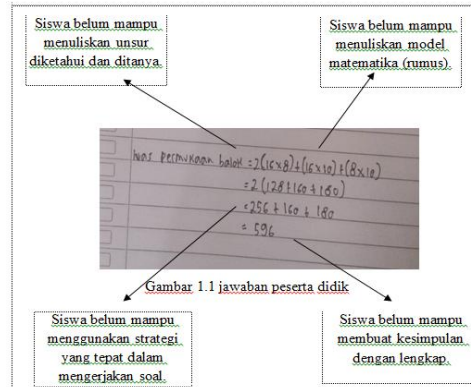 Siswa belum mampu
menuliskan unsur
diketahui dan ditanya.
Siswa belum mampu
menuliskan model
matematika (rumus).
luas permukaan balok = 2(16x8)+(16x10)+(8x10)
= 2(128+160+180)
= 256 + 160 + 180
= 596
Gambar 1.1 jawaban peserta didik
Siswa belum mampu
menggunakan strategi
yang tepat dalam
mengerjakan soal.
Siswa belum mampu
membuat kesimpulan
dengan lengkap.